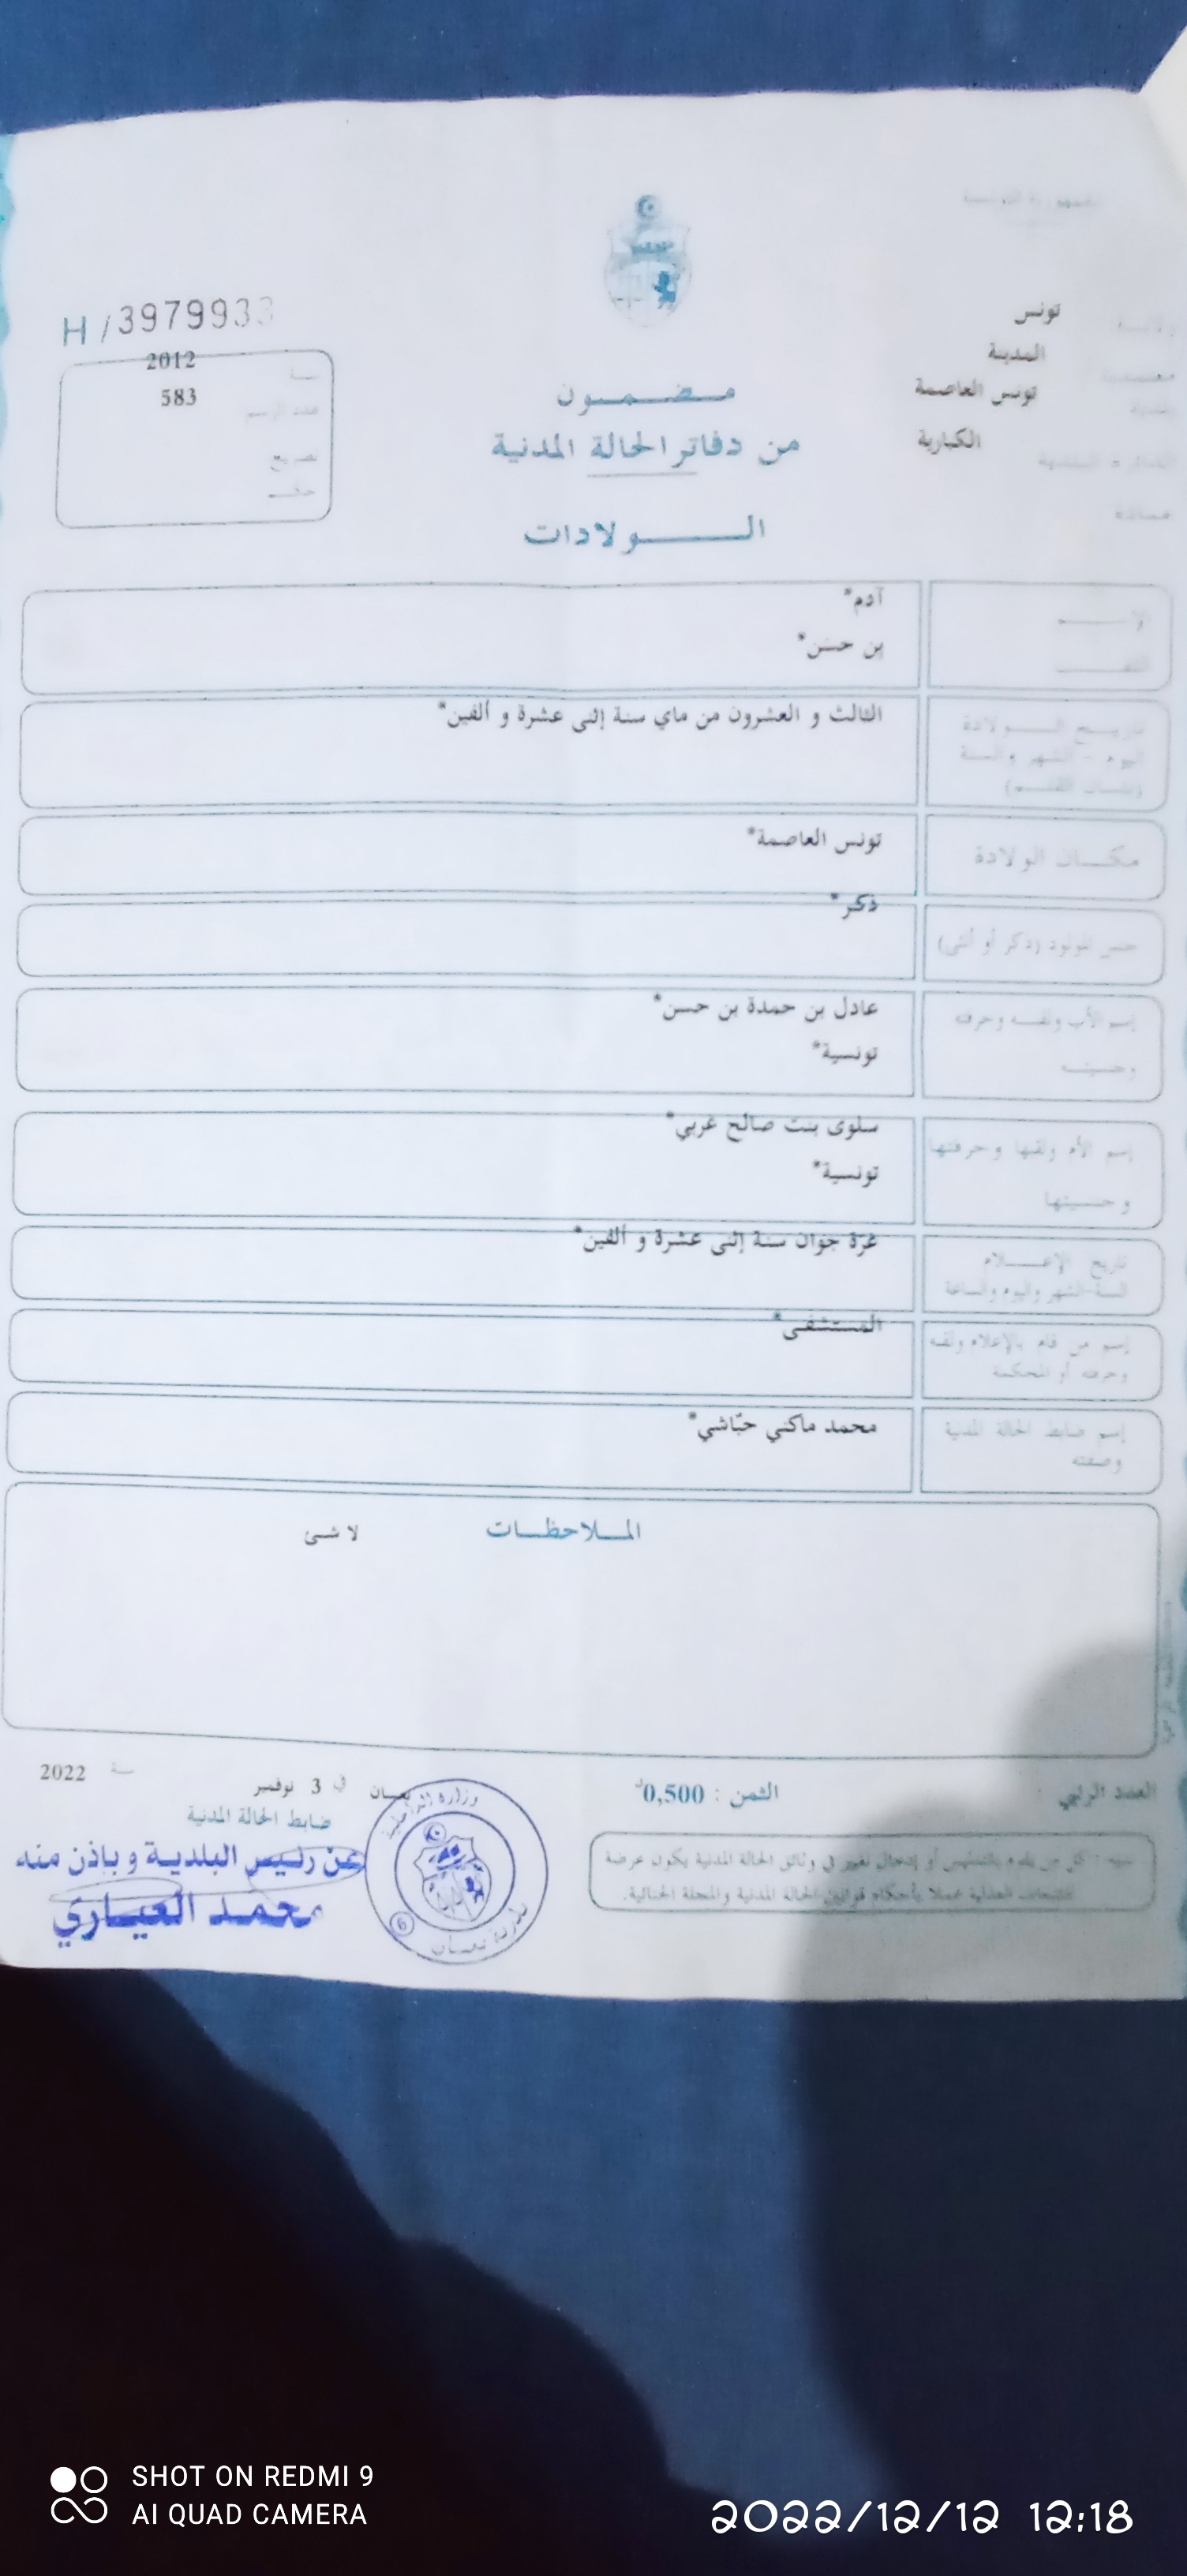 الجمهورية التونسية
H/3979933
تونس
المدينة
تونس العاصمة
الكبارية
2012
583
عدد الرسم
تصريح
حكم
مضمون
من دفاتر الحالة المدنية
الولادات
آدم*
بن حسن*
تاريخ الولادة
اليوم - الشهر والسنة
(بلسان القلم)
الثالث و العشرون من ماي سنة إثنى عشرة و ألفين*
مكان الولادة
تونس العاصمة*
جنس المولود (ذكر أو أنثى)
ذكر*
إسم الأب ولقبه وحرفته
وجنسيته
عادل بن حمدة بن حسن*
تونسية*
إسم الأم ولقبها وحرفتها
وجنسيتها
سلوى بنت صالح غربي*
تونسية*
تاريخ الإعلام
السنة-الشهر واليوم والساعة
غرة جوان سنة إثنى عشرة و ألفين*
إسم من قام بالإعلام ولقبه
وحرفته أو المحكمة
المستشفى*
إسم ضابط الحالة المدنية
وصفته
محمد ماكني حبّاشي*
الملاحظات
لا شئ
العدد الرتبي
الثمن : 0,500د
نعسان في 3 نوفمبر سنة 2022
ضابط الحالة المدنية
عن رئيس البلدية وبإذن منه
محمد العياري
وزارة الداخلية
بلدية نعسان
6
تنبيه : كل من يقوم بالتدليس أو إدخال تغيير في وثائق الحالة المدنية يكون عرضة
للتتبعات العدلية عملا بأحكام قوانين الحالة المدنية والمجلة الجنائية.
SHOT ON REDMI 9
AI QUAD CAMERA
2022/12/12 12:18